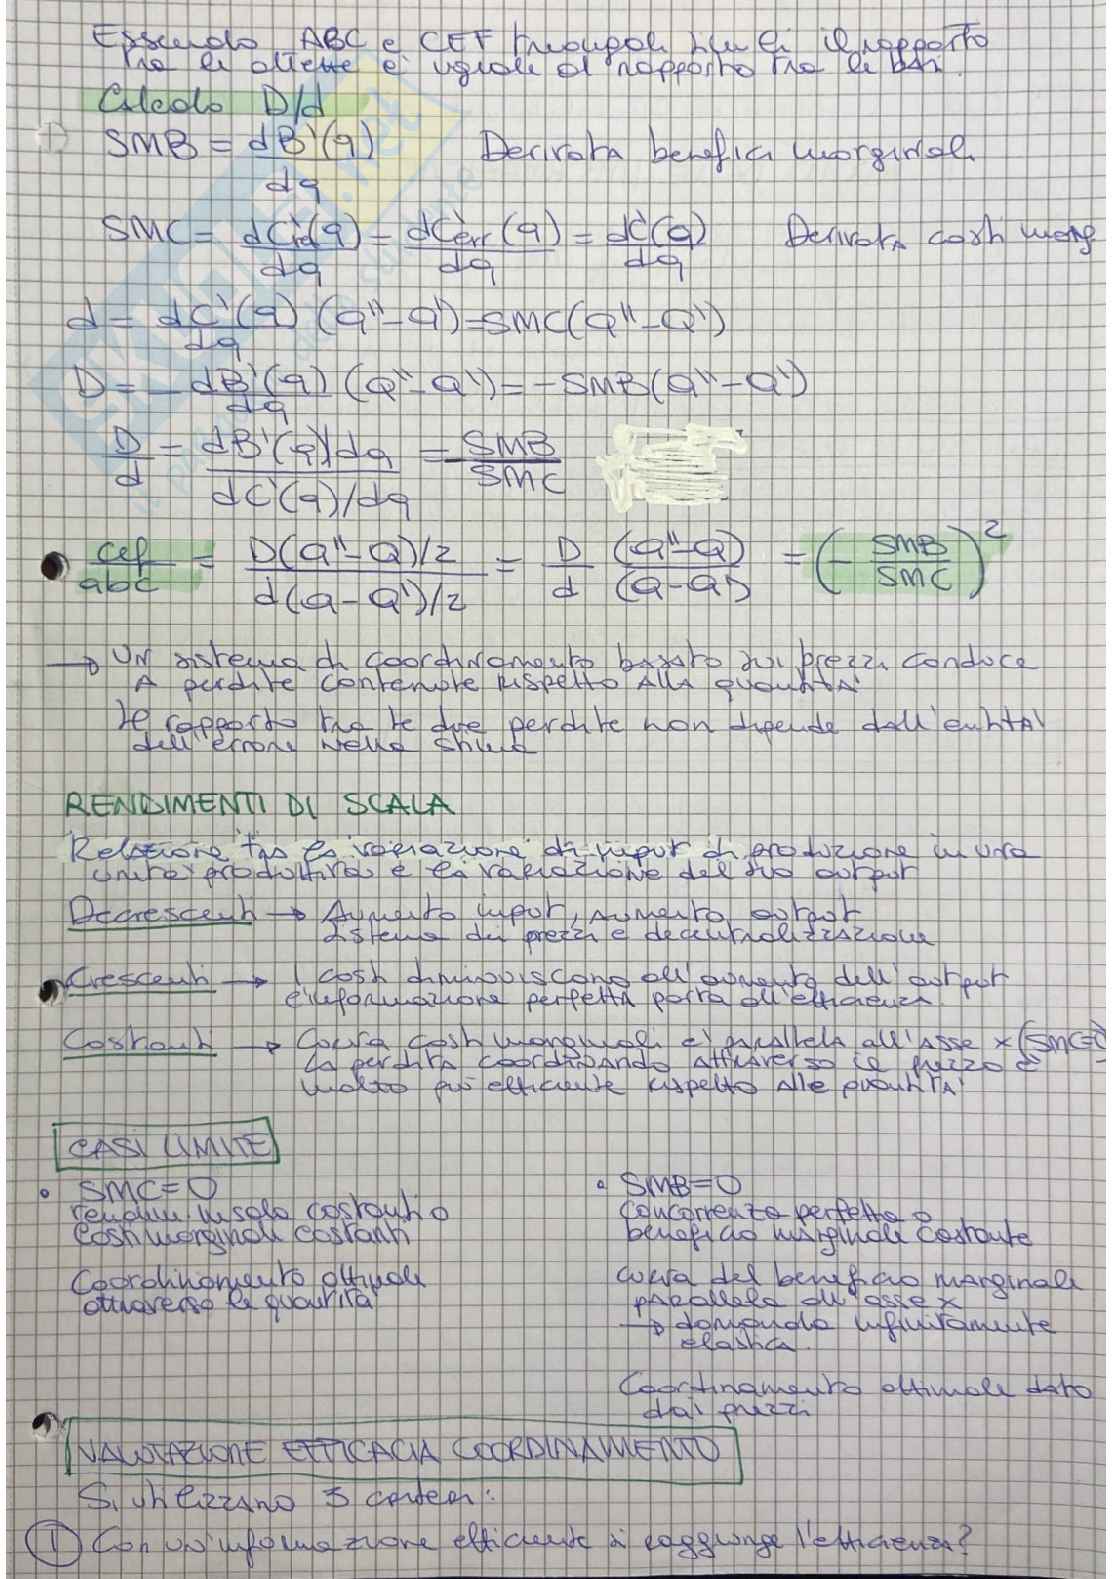 Essendo ABC e CEF triangoli simili il rapporto
tra le altezze è uguale al rapporto tra le basi
Calcolo D/d
SMB = dB'(q)/dq Derivata benefici marginali
SMC = dC'rd(q)/dq = dC'err(q)/dq = dC'(q)/dq Derivata costi marg
d = dC'(q)/dq (Q''-Q') = SMC(Q''-Q')
D = - dB'(q)/dq (Q''-Q') = -SMB(Q''-Q')
D/d = dB'(q)/dq / dC'(q)/dq = - SMB/SMC
cef/abc = D(Q''-Q)/2 / d(Q-Q')/2 = D/d (Q''-Q)/(Q-Q') = (- SMB/SMC)²
→ UN sistema di coordinamento basato sui prezzi conduce
A perdite contenute rispetto ALLA quantità
Il rapporto tra le due perdite non dipende dall'entità
dell'errore nella stima
RENDIMENTI DI SCALA
Relazione tra la variazione di input di produzione in una
unità produttiva e la variazione del suo output
Decrescenti → Aumento input, aumento output
sistema dei prezzi e decentralizzazione
Crescenti → I costi diminuiscono all'aumento dell'output
e' informazione perfetta porta all'efficienza
Costanti → Curva costi marginali e' parallela all'asse x (SMC=0)
La perdita coordinando attraverso il prezzo è
molto più efficiente rispetto alle quantità
CASI LIMITE
• SMC=0
rendim. in scala costanti o
costi marginali costanti
Coordinamento ottimale
attraverso le quantità
• SMB=0
concorrenza perfetta o
beneficio marginale costante
curva del beneficio marginale
parallela all'asse x
→ domanda infinitamente
elastica.
Coordinamento ottimale dato
dai prezzi
VALUTAZIONE EFFICACIA COORDINAMENTO
Si utilizzano 3 criteri:
① Con un'informazione efficiente si raggiunge l'efficienza?